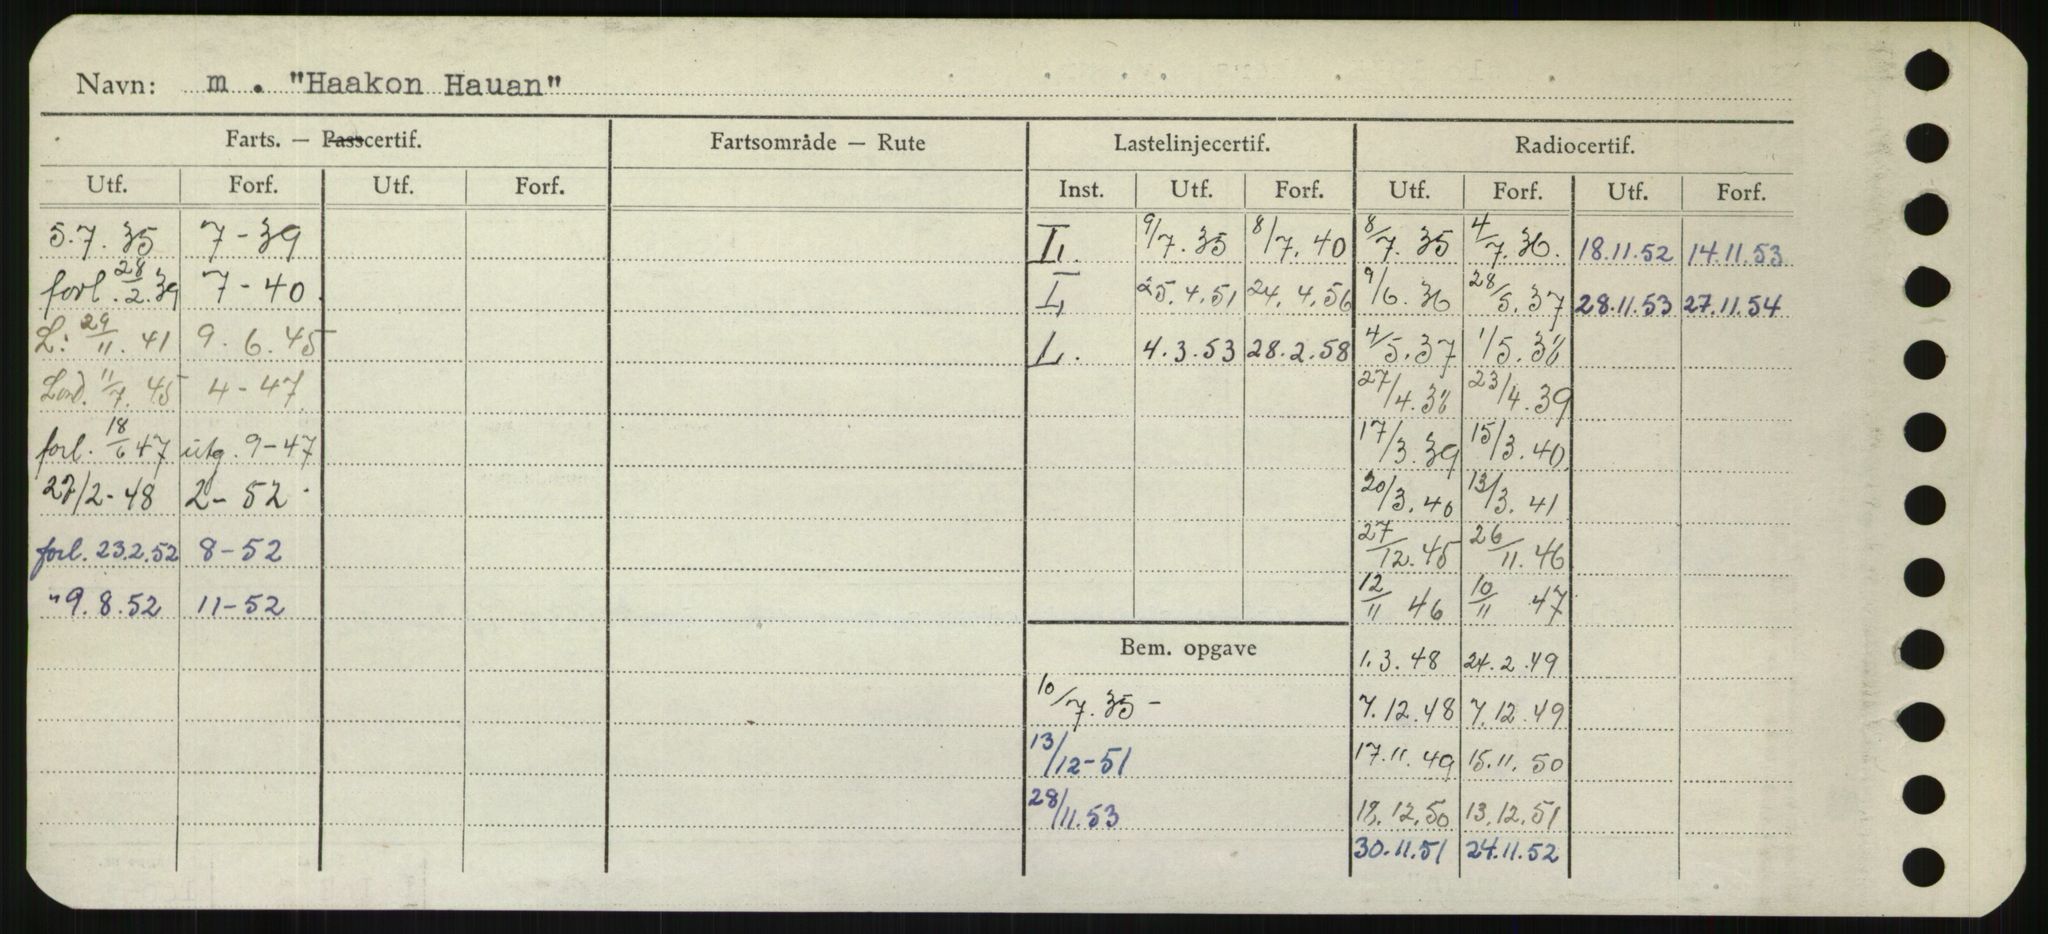 Navn: m . "Haakon Hauan"
Farts. — Passcertif. Fartsområde — Rute Lastelinjecertif. Radiocertif.
Utf. Forf. Utf. Forf. Inst. Utf. Forf. Utf. Forf. Utf. Forf.
5.7.35 7-39 9/7.35 8/7.40 8/7.35 4/7.36. 18.11.52 14.11.53
forl. 28/2.39 7-40 25.4.51 24.4.56 9/6.36 28/5.37 28.11.53 27.11.54
L: 29/11.41 9.6.45 L. 4.3.53 28.2.58 4/5.37 1/5.38
Lond. 11/7.45 4-47 27/4.38 23/4.39
forl. 18/6 47 utg. 9-47 17/3.39 15/3.40
27/2-48 2-52 20/3.40 13/3.41
forl. 23.2.52 8-52 27/12.45 26/11.46
" 9.8.52 11-52 12/11 46 10/11 47
Bem. opgave 1.3.48 24.2.49
10/7.35 - 7.12.48 7.12.49
13/12-51 17.11.49 15.11.50
28/11.53 18.12.50 13.12.51
30.11.51 24.11.52